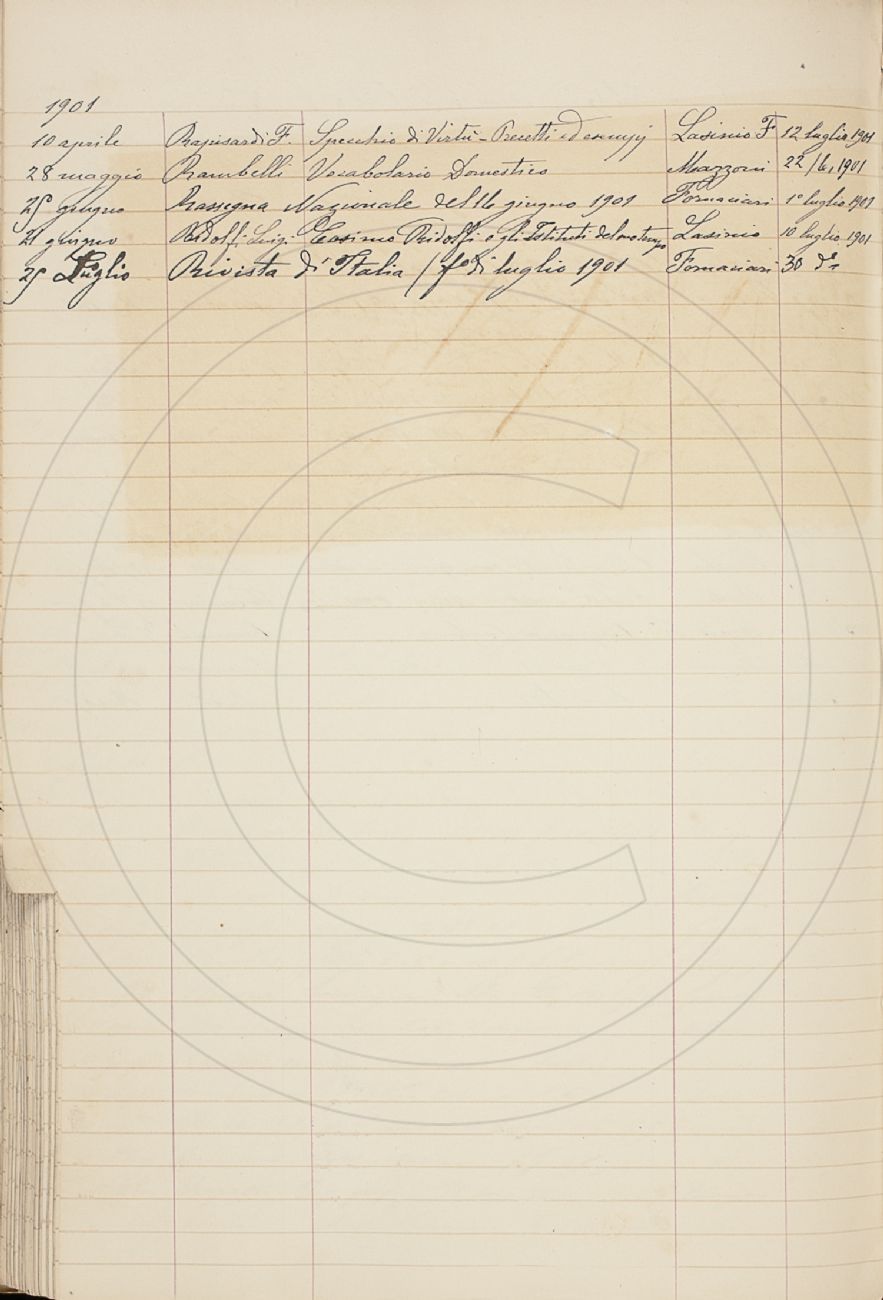 1901
10 aprile Rapisardi F. Specchio di Virtù - Precetti ed esempj Lasinio F 12 luglio 1901
28 maggio Rambelli Vocabolario Domestico Mazzoni 22/6, 1901
25 giugno Rassegna Nazionale del 16 giugno 1901 Fornaciari 1º luglio 1901
21 giugno Ridolfi Luigi Cosimo Ridolfi e gli Istituti del suo tempo Lasinio 10 luglio 1901
25 Luglio Rivista d'Italia / fº di luglio 1901 Fornaciari 30 dº